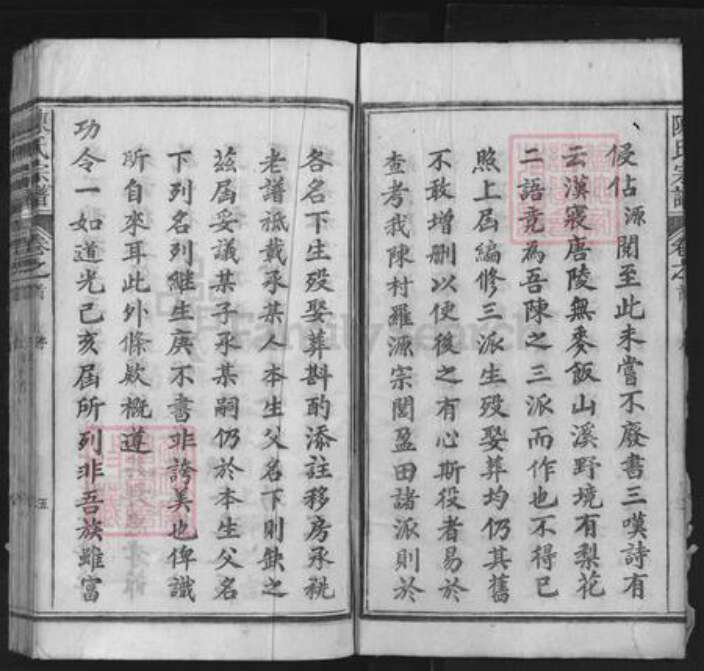 侵佔源閱至此未嘗不廢書三嘆詩有
云漢寢唐陵無麥飯山溪野境有梨花
二語竟為吾陳之三派而作也不得已
照上屆編修三派生歿娶葬均仍其舊
不敢增刪以便後之有心斯役者易於
查考我陳村羅源宗閣盈田諸派則於
各名下生歿娶葬斟酌添註移房承祧
老譜祗載承某人本生父名下則缺之
茲屆妥議某子承某嗣仍於本生父名
下列名列繼生庚不書非誇美也俾識
所自來耳此外條款概遵
功令一如道光己亥屆所列非吾族雖富
陳氏宗譜
卷之首
五
陳氏宗譜
卷之首
FamilySearch